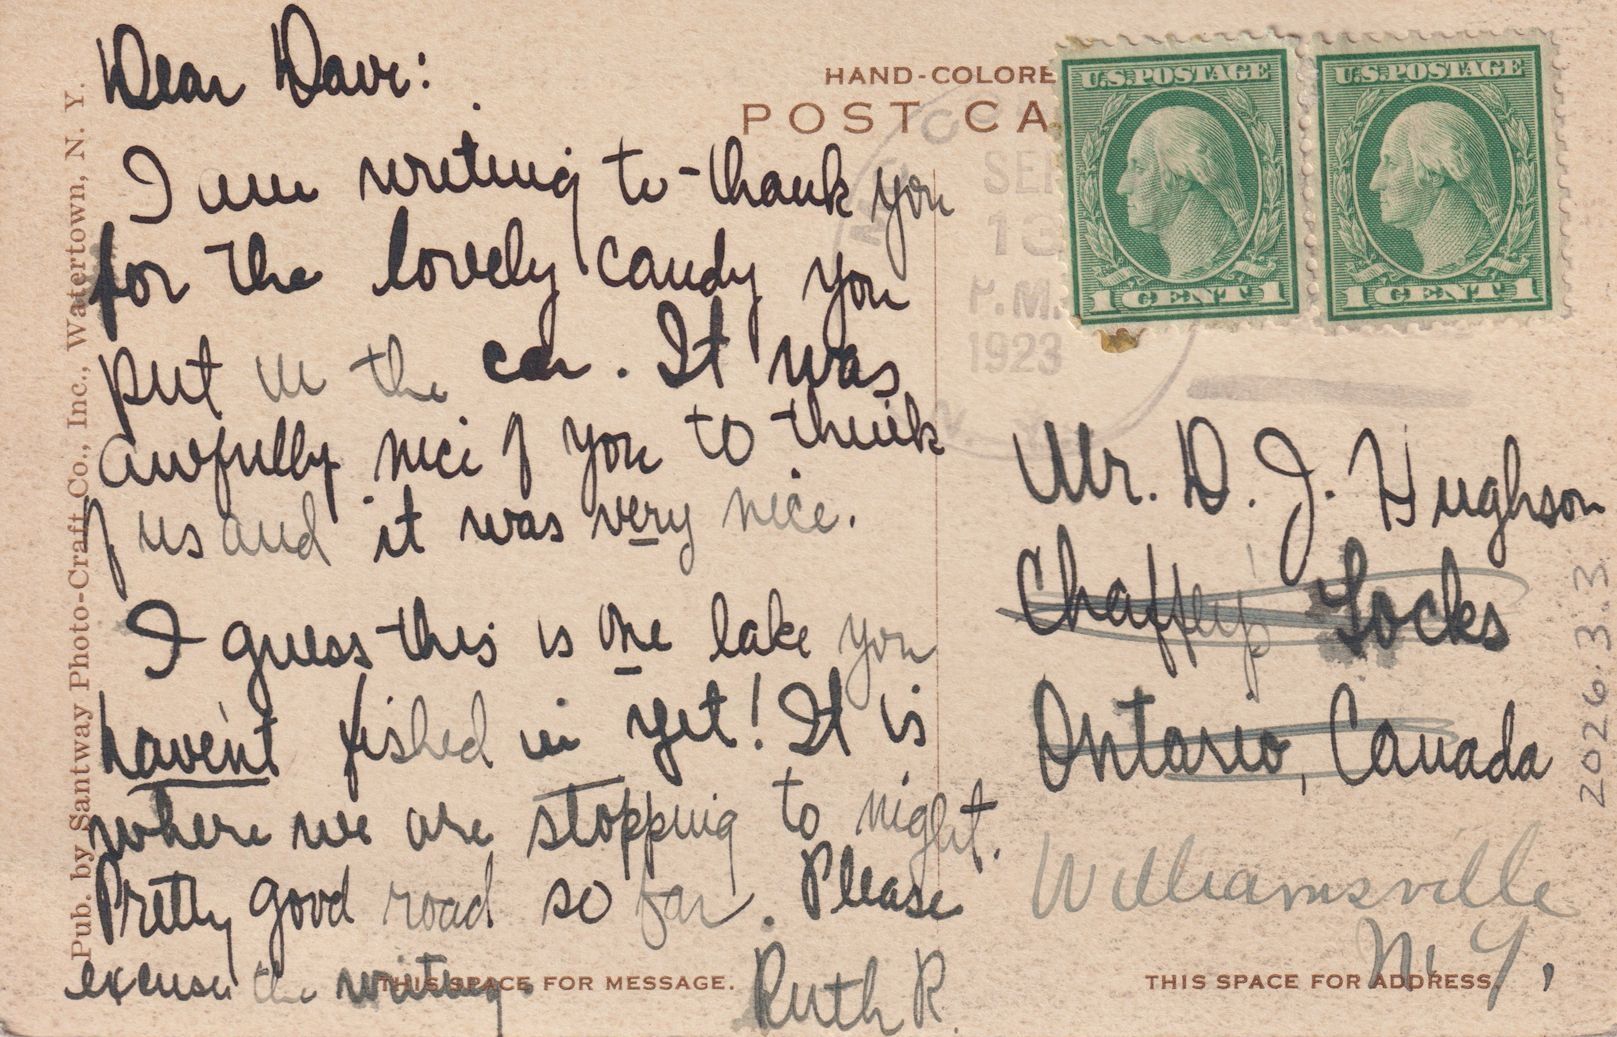 Dear Dave:
I am writing to thank you
for the lovely candy you
put in the car. It was
awfully nice of you to think
of us and it was very nice.
I guess this is one lake you
haven't fished in yet! It is
where we are stopping to night.
Pretty good road so far. Please
excuse the writing.
Ruth R.
Pub. by Santway Photo-Craft Co., Inc., Watertown, N. Y.
HAND-COLORE
POST CA
SEP
13
P.M.
1923
N. Y.
U.S. POSTAGE
1 CENT 1
U.S. POSTAGE
1 CENT 1
Mr. D. J. Hughson
Chaffey's Locks
Ontario, Canada
Williamsville
N. Y.,
THIS SPACE FOR MESSAGE.
THIS SPACE FOR ADDRESS.
2026.3.3